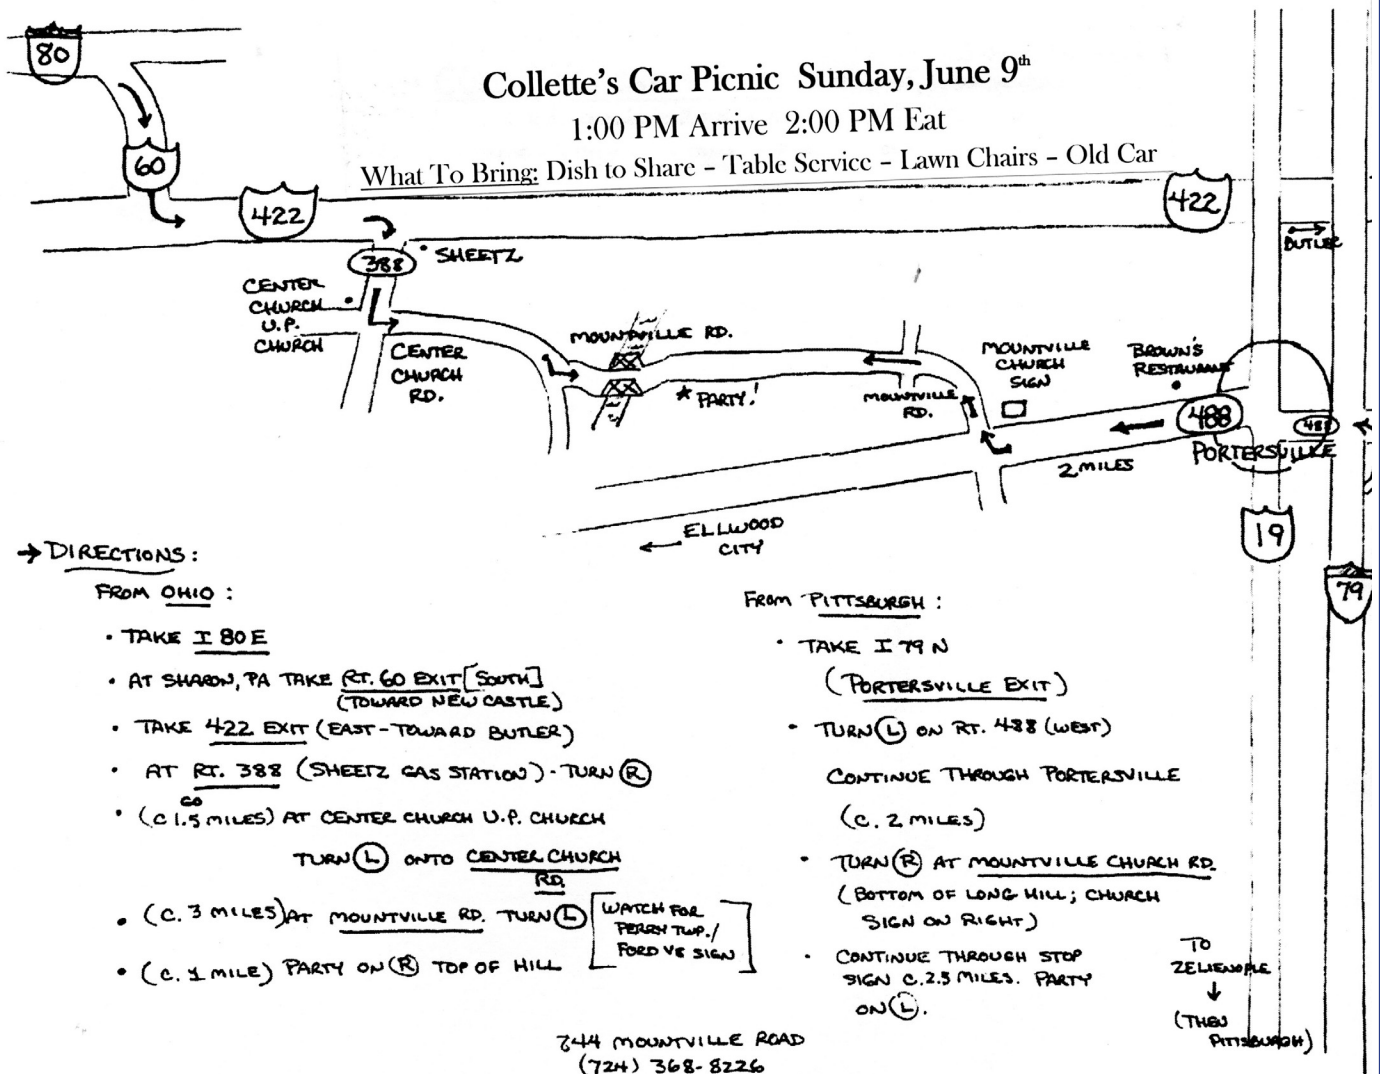 80
Collette's Car Picnic Sunday, June 9th
1:00 PM Arrive 2:00 PM Eat
What To Bring: Dish to Share – Table Service – Lawn Chairs – Old Car
60
422
422
388
• SHEETZ
BUTLER
CENTER
CHURCH
U.P.
CHURCH
CENTER
CHURCH
RD.
MOUNTVILLE RD.
★ PARTY!
MOUNTVILLE
RD.
MOUNTVILLE
CHURCH
SIGN
BROWN'S
RESTAURANT
488
488
PORTERSVILLE
2 MILES
ELLWOOD
CITY
19
79
→ DIRECTIONS:
FROM OHIO:
• TAKE I 80 E
• AT SHARON, PA TAKE RT. 60 EXIT [SOUTH]
(TOWARD NEW CASTLE)
• TAKE 422 EXIT (EAST-TOWARD BUTLER)
• AT RT. 388 (SHEETZ GAS STATION) - TURN R
GO
• (C 1.5 MILES) AT CENTER CHURCH U.P. CHURCH
TURN L ONTO CENTER CHURCH
RD.
• (C. 3 MILES) AT MOUNTVILLE RD. TURN L
[WATCH FOR
PERRY TWP./
FORD V8 SIGN]
• (C. 1 MILE) PARTY ON R TOP OF HILL
FROM PITTSBURGH:
• TAKE I 79 N
(PORTERSVILLE EXIT)
• TURN L ON RT. 488 (WEST)
CONTINUE THROUGH PORTERSVILLE
(C. 2 MILES)
• TURN R AT MOUNTVILLE CHURCH RD.
(BOTTOM OF LONG HILL; CHURCH
SIGN ON RIGHT)
• CONTINUE THROUGH STOP
SIGN C. 2.5 MILES. PARTY
ON L.
TO
ZELIENOPLE
↓
(THEN
PITTSBURGH)
MOUNTVILLE ROAD
(724) 368-8226